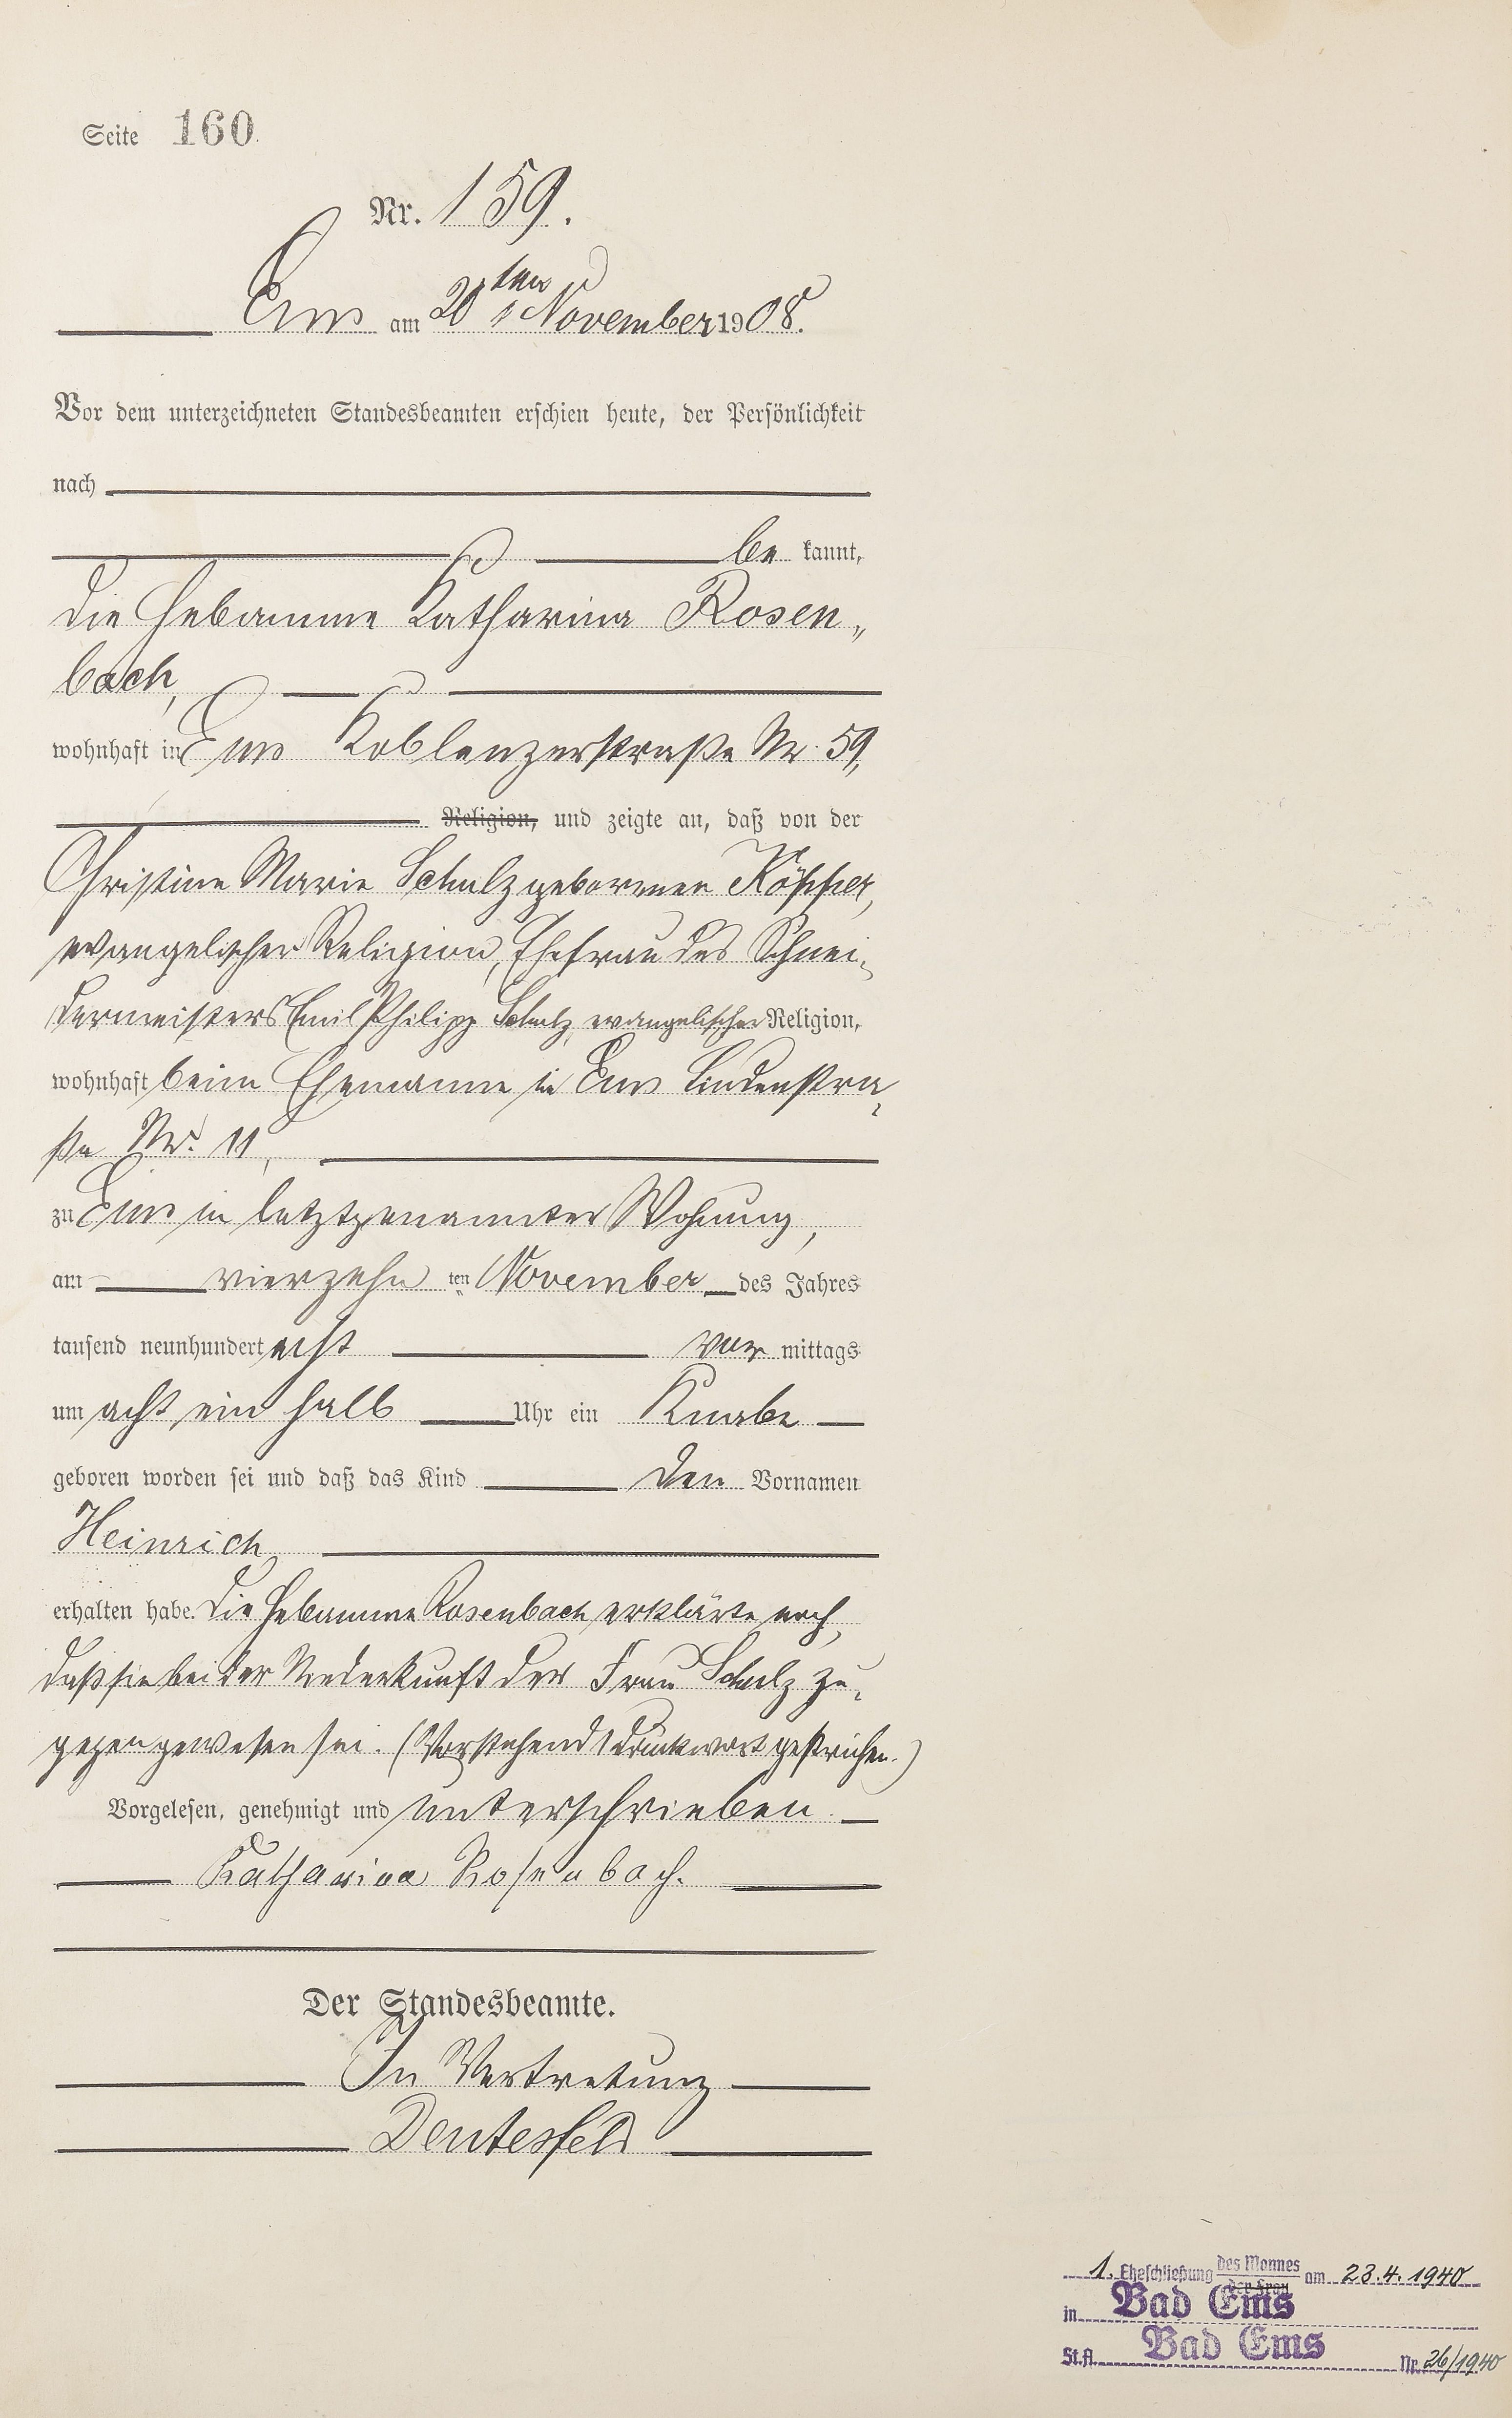 Seite 160.
Nr. 159.
Ems am 20ten November 1908.
Vor dem unterzeichneten Standesbeamten erschien heute, der Persönlichkeit
nach
be kannt,
die Hebamme Katharina Rosen„
bach,
wohnhaft in Ems Koblenzerstraße Nr. 59,
Religion, und zeigte an, daß von der
Christine Marie Schulz geborenen
evangelischer Religion, Ehefrau des Schnei-
dermeisters Emil Philipp Schulz, evangelischer Religion,
wohnhaft beim Ehemanne in Ems Lindenstra-
ße Nr. 11,
zu Ems in letztgenannter Wohnung,
am vierzehn ten November des Jahres
tausend neunhundert acht vor mittags
um acht ein halb Uhr ein Knabe
geboren worden sei und daß das Kind den Vornamen
Heinrich
erhalten habe. Die Hebamme Rosenbach erklärte noch,
daß sie bei der Niederkunft der Frau Schulz zu-
gegen gewesen sei. (Vorstehend 1 Druckwort gestrichen.)
Vorgelesen, genehmigt und unterschrieben.
Katharina Rosenbach.
Der Standesbeamte.
In Vertretung
1. Eheschließung des Mannes der Frau am 23.4.1940
in Bad Ems
St.A. Bad Ems Nr. 26/1940